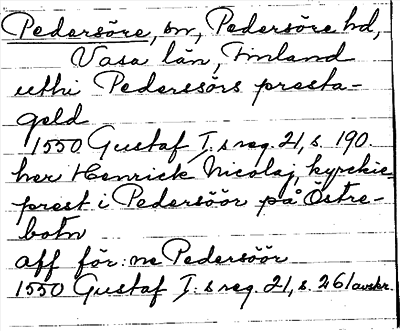 Pedersöre, sn, Pedersöre hd,
Vasa län, Finland
uthi Pederssörs presta-
geld
1550 Gustaf I.s reg. 21, s. 190.
her Henrick Nicolaj, kyrckie-
prest i Pedersöör på Östre-
botn
aff för:ne Pedersöör
1550 Gustaf I:s reg. 21, s. 261 avskr.